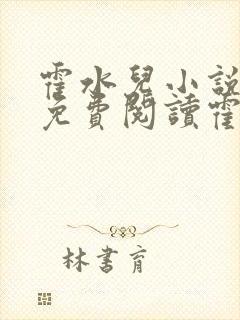 霍水兒小說
免費閱讀霍
林書育